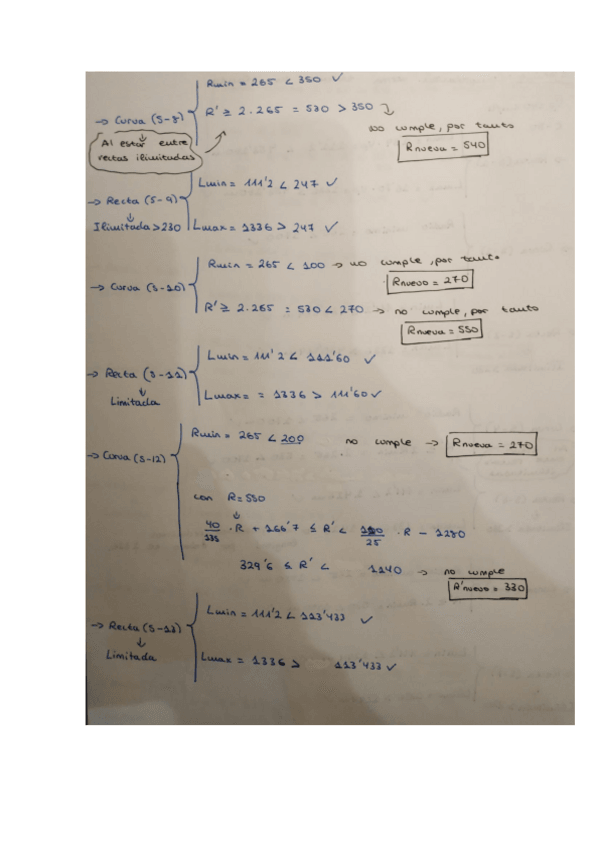 Rmin = 265 < 350 ✓
→ Curva (S-8)
R' ≥ 2·265 = 530 > 350
no cumple, por tanto
Rnueva = 540
Al estar entre
rectas ilimitadas
Lmin = 111'2 < 247 ✓
→ Recta (S-9)
Ilimitada > 230
Lmax = 1336 > 247 ✓
Rmin = 265 < 100 → no cumple, por tanto
Rnuevo = 270
→ Curva (S-10)
R' ≥ 2·265 = 530 < 270 → no cumple, por tanto
Rnueva = 550
Lmin = 111'2 < 111'60 ✓
→ Recta (S-11)
Limitada
Lmax = = 1336 > 111'60 ✓
Rmin = 265 < 200 no cumple → Rnueva = 270
→ Curva (S-12)
con R = 550
40/135 · R + 166'7 ≤ R' < /25 · R - 1280
329'6 ≤ R' < 1240 → no cumple
R'nuevo = 330
Lmin = 111'2 < 113'433 ✓
→ Recta (S-13)
Limitada
Lmax = 1336 > 113'433 ✓